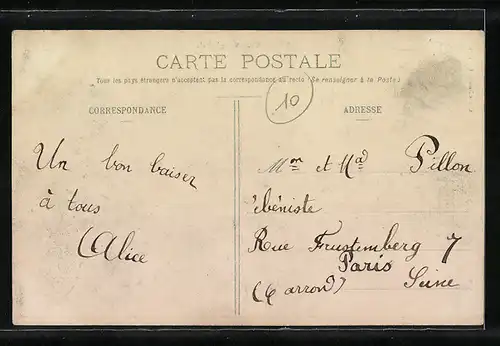 CARTE POSTALE
Tous les pays étrangers n'acceptent pas la correspondance au recto (Se renseigner à la Poste)
10
CORRESPONDANCE
Un bon baiser
à tous
Alice
ADRESSE
Mon et Mad Pillon
ébéniste
Rue Frustemberg 7
Paris
(6 arrond) Seine